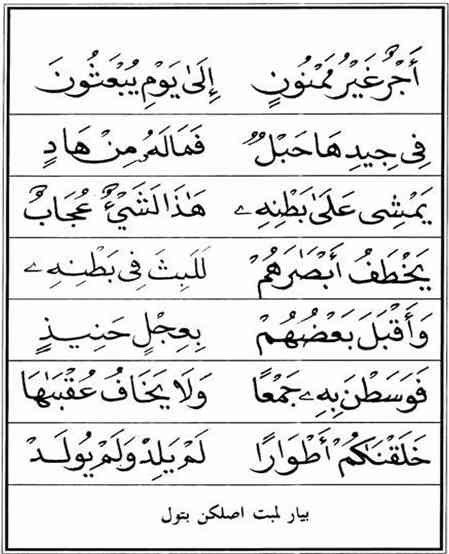 أَجْرٌ غَيْرُ مَمْنُونٍ إِلَىٰ يَوْمِ يُبْعَثُونَ
فِى جِيدِهَا حَبْلٌ فَمَالَهُۥ مِنْ هَادٍ
يَمْشِى عَلَىٰ بَطْنِهِۦ هَٰذَا لَشَىْءٌ عُجَابٌ
يَخْطَفُ أَبْصَٰرَهُمْ لَلَبِثَ فِى بَطْنِهِۦ
وَأَقْبَلَ بَعْضُهُمْ بِعِجْلٍ حَنِيذٍ
فَوَسَطْنَ بِهِۦ جَمْعًا وَلَا يَخَافُ عُقْبَٰهَا
خَلَقْنَٰكُمْ أَطْوَارًا لَمْ يَلِدْ وَلَمْ يُولَدْ
بيار لمبت اصلكن بتول